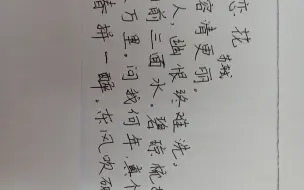 恋花
苏轼
容清更丽。
人，幽恨终难洗。
前三面水。碧琼梳
万里。问我何年，真个
春拼一醉。东风吹破